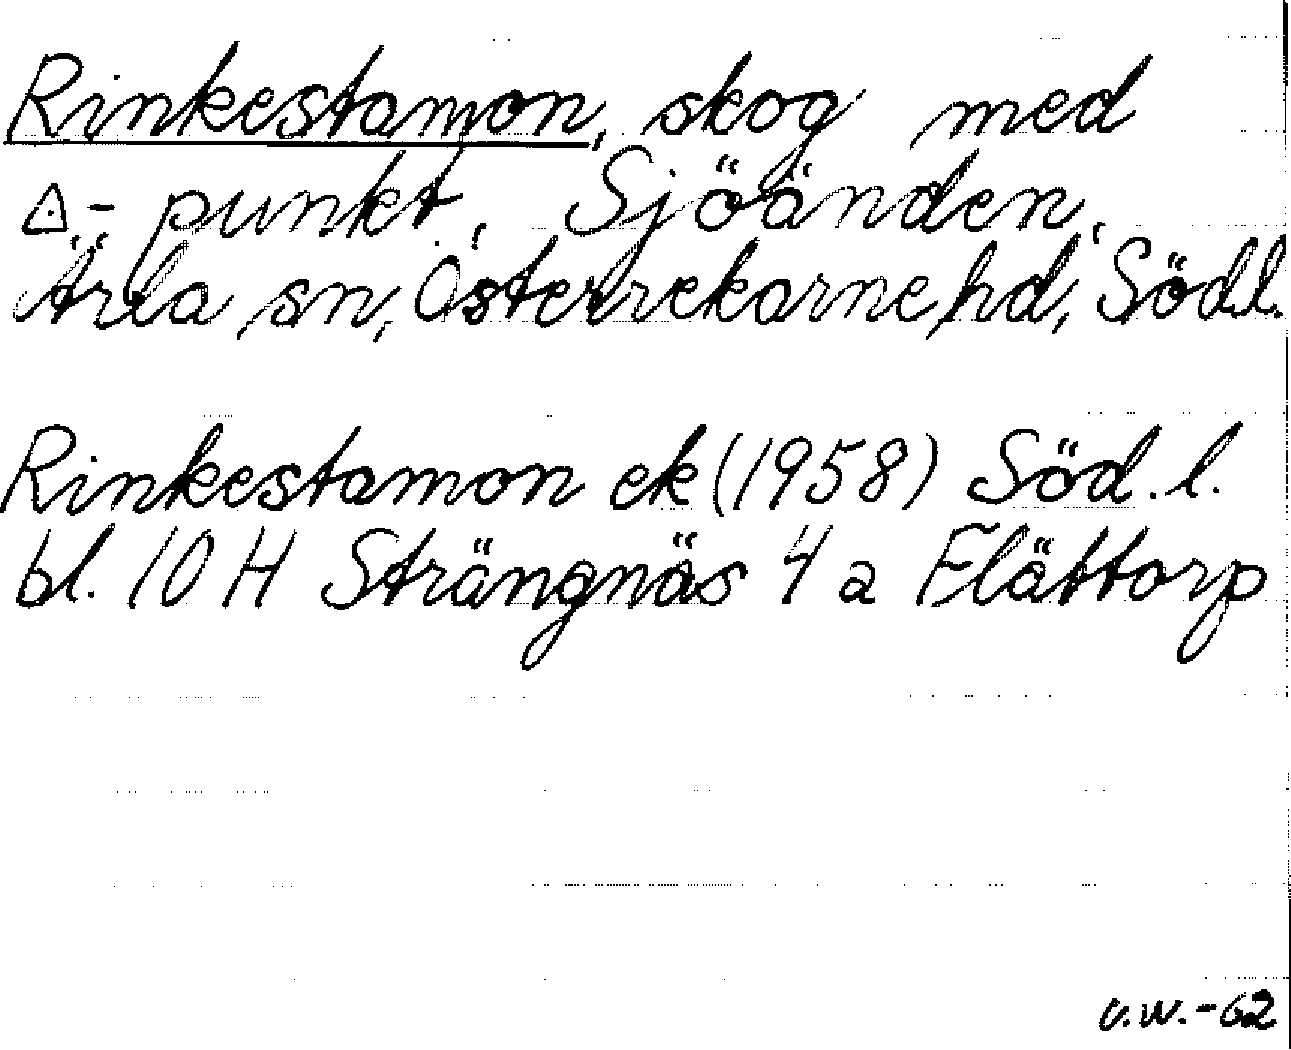 Rinkestamon, skog med
△-punkt, Sjöänden,
Ärla sn, Österrekarne hd, Södl.
Rinkestamon ek (1958) Söd.l.
bl. 10 H Strängnäs 4 a Flättorp
v.w.-62